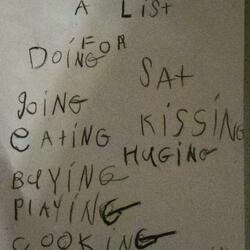 A List
FOR
DOING
SAt
going
eAting
KISSING
HUGING
BUYING
PLAYING
COOKING